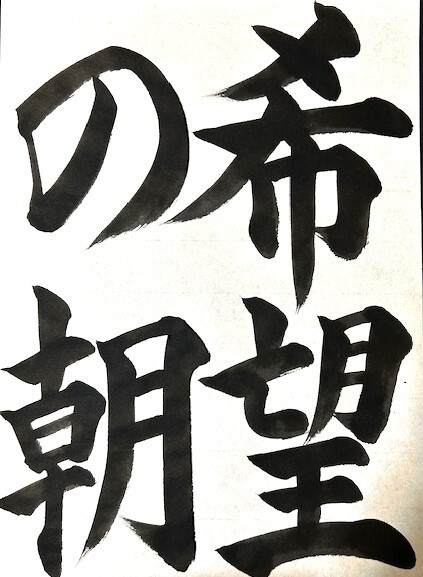 希望
の朝